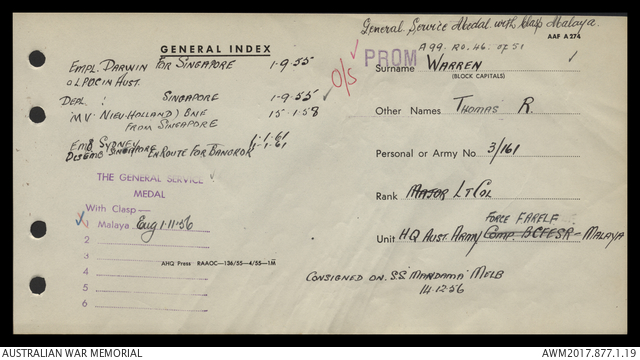 General Service Medal with Clasp Malaya.
AAF A 274
GENERAL INDEX
A99. RO. 46. of 51
PROM
EMPL. DARWIN FOR SINGAPORE 1-9-55
O/S
Surname WARREN
(BLOCK CAPITALS)
DEPL : SINGAPORE 1-9-55
"MV. NIEU-HOLLAND) BNE 15-1-58
FROM SINGAPORE
Other Names THOMAS R.
EMB SYDNEY 1-1-61
DISEMB SINGAPORE EN ROUTE FOR BANGKOK 1-1-61
Personal or Army No 3/161
THE GENERAL SERVICE
MEDAL
With Clasp—
Rank MAJOR LT COL
1 Malaya Elig 1-11-56
FORCE FARELF
Unit HQ AUST. ARMY COMP. BCFESR - MALAYA
2
3
AHQ Press: RAAOC—136/55—4/55—1M
4
CONSIGNED ON S.S. "MANDAMA" MELB
14.12.56
5
6
AUSTRALIAN WAR MEMORIAL
AWM2017.877.1.19